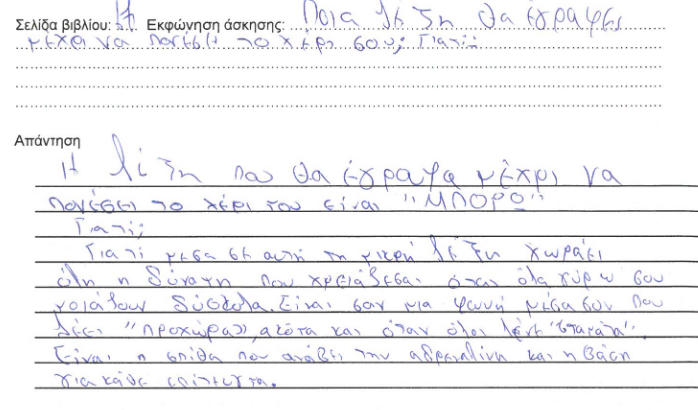 Σελίδα βιβλίου: 17 Εκφώνηση άσκησης: Ποια λέξη θα έγραφες
μέχρι να πονέσει το χέρι σου; Γιατί;
Απάντηση
Η λέξη που θα έγραφα μέχρι να
πονέσει το χέρι του είναι "ΜΠΟΡΩ"
Γιατί;
Γιατί μεσα σε αυτή τη μικρή λέξη χωράει
όλη η δύναμη που χρειάζεσαι όταν όλα γύρω σου
μοιάζουν δύσκολα. Είναι σαν μια φωνή μέσα σου που
λέει "προχώρα", ακόμα και όταν όλοι λένε "σταμάτα".
Είναι η σπίθα που ανάβει την αδρεναλίνη και η βάση
για κάθε επίτευγμα.